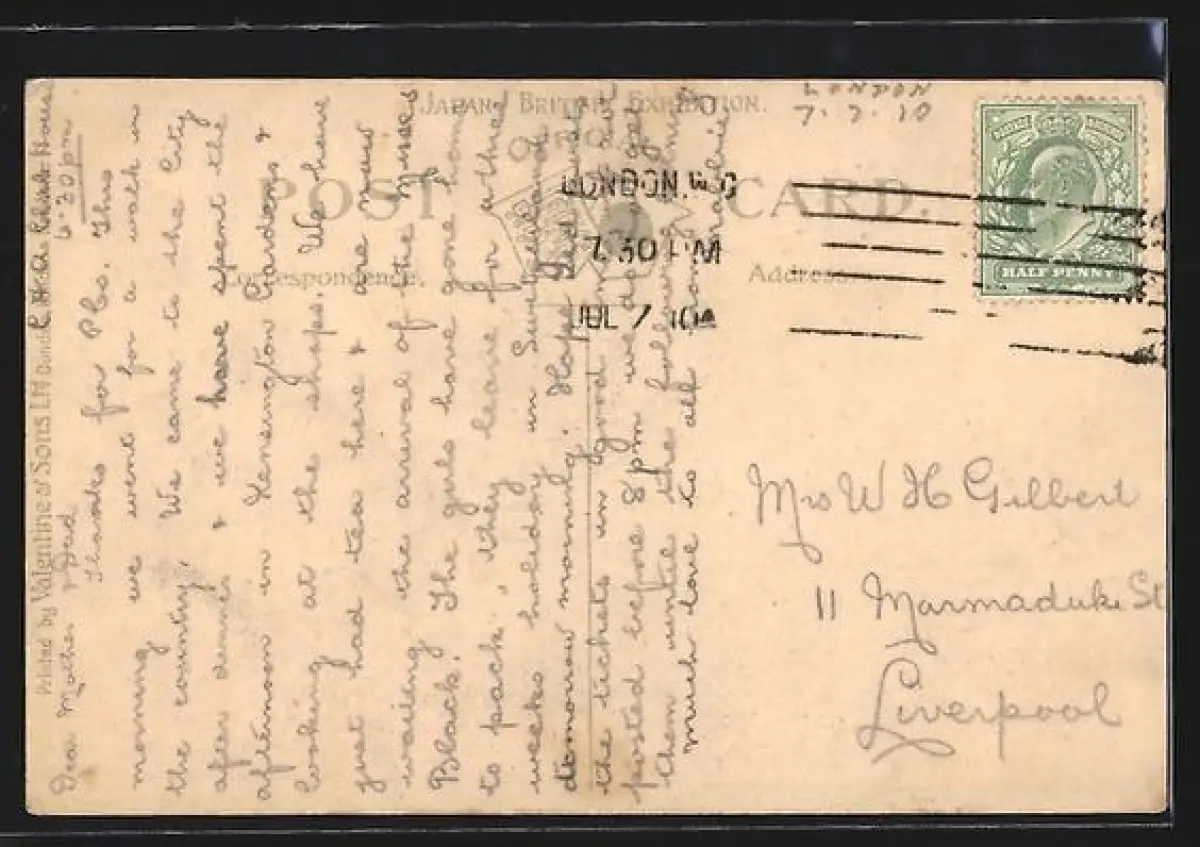 JAPAN BRITISH EXHIBITION.
1910
LONDON
7.7.10
POST CARD.
Correspondence.
Address.
LONDON. W.C
7.30 PM
JUL 7 10
HALF PENNY
Printed by Valentine & Sons Ltd
6.30 pm
Dear Mother & Dad
Thanks for Pcs. This
morning we went for a walk in
the country. We came to the City
after dinner & we have spent the
afternoon in Kensington Gardens &
looking at the shops. We have
just had tea here & are now
waiting the arrival of the Misses
Black. The girls have gone home
to pack, they leave for a
weeks holiday in Switzerland
tomorrow morning. Hope Dad
the tickets in good time
posted before 8pm we get
them until the following
much love to all from
Mrs W H Gilbert
11 Marmaduke St
Liverpool